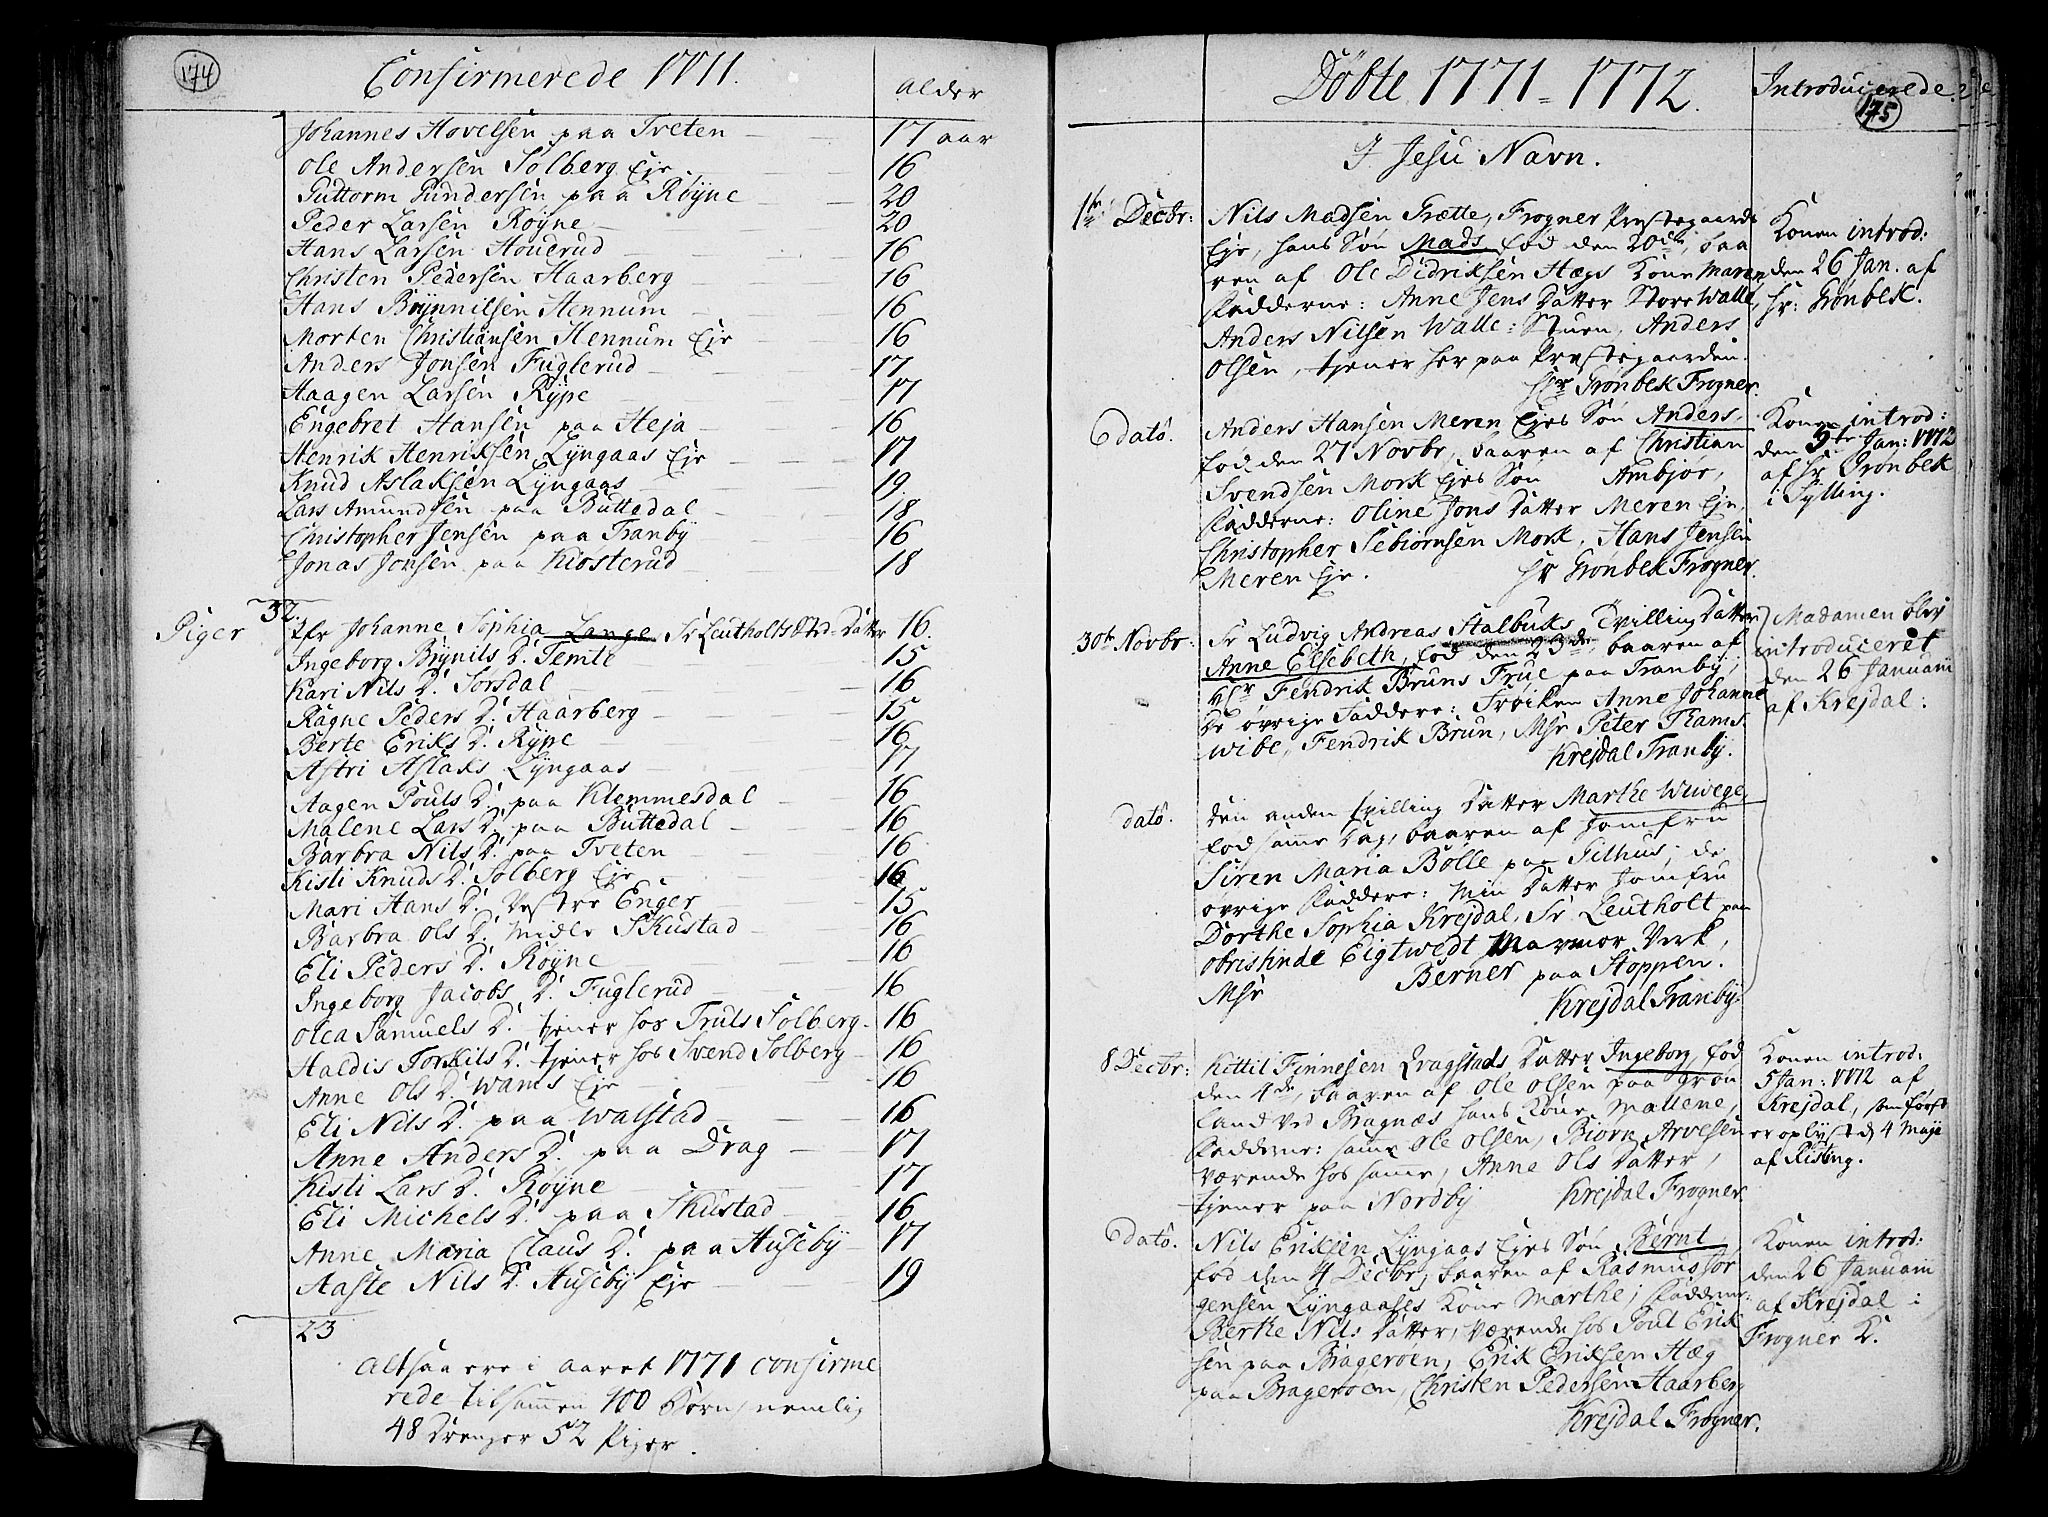 174
Confirmerede 1771.
Alder
Johannes Hovelsen paa Tveten 17 aar
Ole Andersen Solberg Eje 16
Guttorm Gundersen paa Røyne 20
Peder Larsen Røyne 20
Hans Larsen Houerud 16
Christen Pedersen Haarberg 16
Hans Brynnilsen Hennum 16
Morten Christiansen Hennum Eje 16
Anders Jonsen Fuglerud 17
Haagen Larsen Rype 17
Engebret Hansen paa Heja 16
Henrik Henriksen Lyngaas Eje 17
Knud Aslaksen Lyngaas 19
Lars Amundsen paa Buttedal 18
Christopher Jensen paa Tranby 16
Jonas Jonsen paa Kiosterud 18
32.
Piger Jfr Johanne Sophia Lange Sr Leutholts Datter 16.
Ingeborg Brynils D. Temte 15
Kari Nils D. Sorsdal 16
Ragne Peders D. Haarberg 15
Berte Eriks D. Rype 16
Astri Aslaks Lyngaas 17
Aagen Pouls D. paa Klemmesdal 16
Malene Lars D. paa Buttedal 16
Barbra Nils D. paa Tveten 16
Kisti Knuds D. Solberg Eje 16
Mari Hans D. Vestre Enger 15
Barbra Ols D. Midle Skustad 16
Eli Peders D. Røyne 16
Ingeborg Jacobs D. Fuglerud 16
Olea Samuels D. tjener hos Truls Solberg 16
Haldis Torkils D. tjener hos Svend Solberg 16
Anne Ols D. Wams Eje 16
Eli Nils D. paa Walstad 16
Anne Anders D. paa Drag 17
Kisti Lars D. Røyne 17
Eli Michels D. paa Skustad 16
Anne Maria Claus D. paa Huseby 17
Aaste Nils D. Huseby Eje 19
23
Altsaa ere i aaret 1771 confirme
rede tilsammen 100 Børn, nemlig
48 Drenge 52 Piger.
Døbte 1771 = 1772.
Introducerede.
175
I Jesu Navn.
1ste Decbr: Nils Madsen Grætte, Frogner Præstegaards
Eje, hans Søn Mads, fød den 20de, baa
ren af Ole Didriksen Hægs Kone Maren
Fadderne: Anne Jens Datter Store Walle,
Anders Nilsen Walle: Stuen, Anders
Olsen, tjener her paa Præstegaarden.
Hr Grønbek Frogner.
Konen introd:
den 26 Jan. af
Hr: Grønbek.
Edato. Anders Hansen Meren Ejes Søn Anders,
fød den 27 Novbr, baaren af Christian
Svendsen Mork Ejes Søn Ambjor,
Fadderne: Oline Jons Datter Meren Eje,
Christopher Sebiørnsen Mork, Hans Jensen
Meren Eje. Hr Grønbek Frogner.
Konen introd:
den 5te Jan: 1772
af Hr Grønbek
i Sylling.
30te Novbr. Sr Ludvig Andreas Stalbuks Tvilling Datter
Anne Elsebeth, fød den 23de, baaren af
Hr Fendrik Bruns Frue paa Tranby,
De øvrige Faddere: Frøiken Anne Johanne
Wibe, Fendrik Brun, Msr Peter Thams.
Krejdal Tranby.
Madamen blev
introduceret
den 26 Januarii
af Krejdal:
dato. Den anden tvilling Datter Marthe Wivege,
fød samme Dag, baaren af Jomfru
Siren Maria Bolle paa Gilhus; de
øvrige Faddere: Min Datter Jomfru
Dorthe Sophia Krejdal, Sr Leutholt paa
Obristinde Eigtwedt Marmor Værk,
Msr Berner paa Stoppen.
Krejdal Tranby.
8 Decbr: Kittil Finnesen Eragstads Datter Ingeborg, fød
den 4de, baaren af Ole Olsen paa Grøn
land ved Bragnæs hans Kone Mallene,
Fadderne: samme Ole Olsen, Biørn Arvesen
værende hos samme, Anne Ols Datter,
tjener paa Nordby Krejdal Frogner.
Konen introd:
5 Jan: 1772 af
Krejdal, som først
er oplyst d 4 Maje
af Risting.
Edato. Nils Eriksen Lyngaas Ejes Søn Bernt,
fød den 4 Decbr, baaren af Rasmus Jør
gensen Lyngaases Kone Marthe; Fadderne:
Berthe Nils Datter, værende hos Poul Erik
sen paa Bragerøen, Erik Eriksen Hæg
paa Bragerøen, Christen Pedersen Haarberg
Krejdal Frogner.
Konen introd:
den 26 Januarii
af Krejdal i
Frogner K.